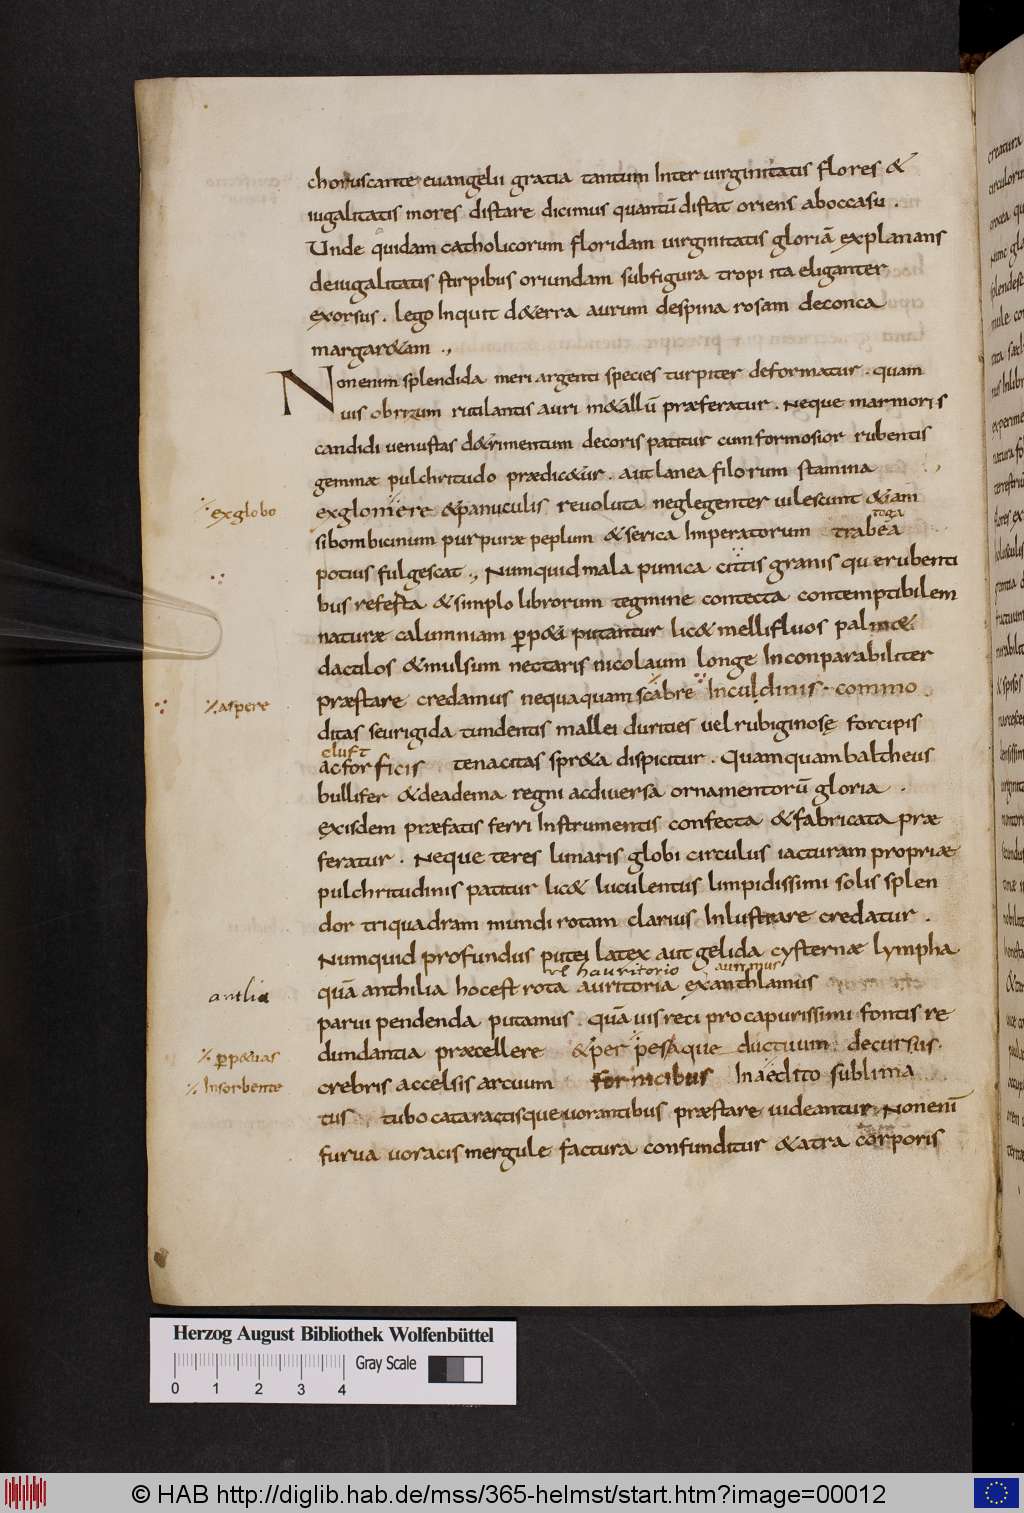 choruscante euangelii gratia tantum Inter uirginitatis flores &
iugalitatis mores distare dicimus quantū distat oriens aboccasu .
Unde quidam catholicorum floridam uirginitatis gloriā explanans
deiugalitatis stirpibus oriundam subfigura tropi ita eliganter
exorsus . lego Inquit d&erra aurum despina rosam deconca
margar&am .,
Nonenim splendida meri argenti species turpiter deformatur . quam
uis obrizum rutilantis auri m&allū præferatur . Neque marmoris
candidi uenustas d&rimentum decoris patitur cum formosior rubentis
gemmæ pulchritudo prædic&ur . aut lanea filorum stamina
exglobo
exglomere &panuculis reuoluta neglegenter uilescunt &iam
toga
sibombicinum purpuræ peplum &serica Imperatorum trabea
potius fulgescat ., Numquid mala punica cittis granis qu erubenti
bus referta &simplo librorum tegmine contecta contemptibilem
naturæ calumniam ꝑp&i putantur lic& mellifluos palm&
dactilos &mulsum nectaris nicolaum longe Inconparabiliter
aspere
præstare credamus nequaquam scabre Inculdinis commo
ditas seurigida tundentis mallei durities uel rubiginosę forcipis
cluft
acforficis tenacitas spr&a dispicitur . Quamquam baltheus
bullifer &deadema regni acdiuersa ornamentorū gloria .
exisdem præfatis ferri Instrumentis confecta &fabricata præ
feratur . Neque teres lunaris globi circulus iacturam propriæ
pulchritudinis patitur lic& luculentus limpidissimi solis splen
dor triquadram mundi rotam clarius Inlustrare credatur .
Numquid profundus putei latex aut gelida cysternæ lympha
uel hauritorio aurimus
antlia
quā anthilia hocest rota auritoria exanthlamus
parui pendenda putamus . quā uis reci procapurissimi fontis re
ꝑp&uas
dundantia præcellere &per pesaque ductuum decursus .
Insorbente
crebris accelsis arcuum fornicibus Inaedito sublima
tus tubo cataractisque uorantibus præstare uideantur . Nonenī
furua uoracis mergule factura confunditur &atra corporis
Herzog August Bibliothek Wolfenbüttel
Gray Scale
0 1 2 3 4
© HAB http://diglib.hab.de/mss/365-helmst/start.htm?image=00012